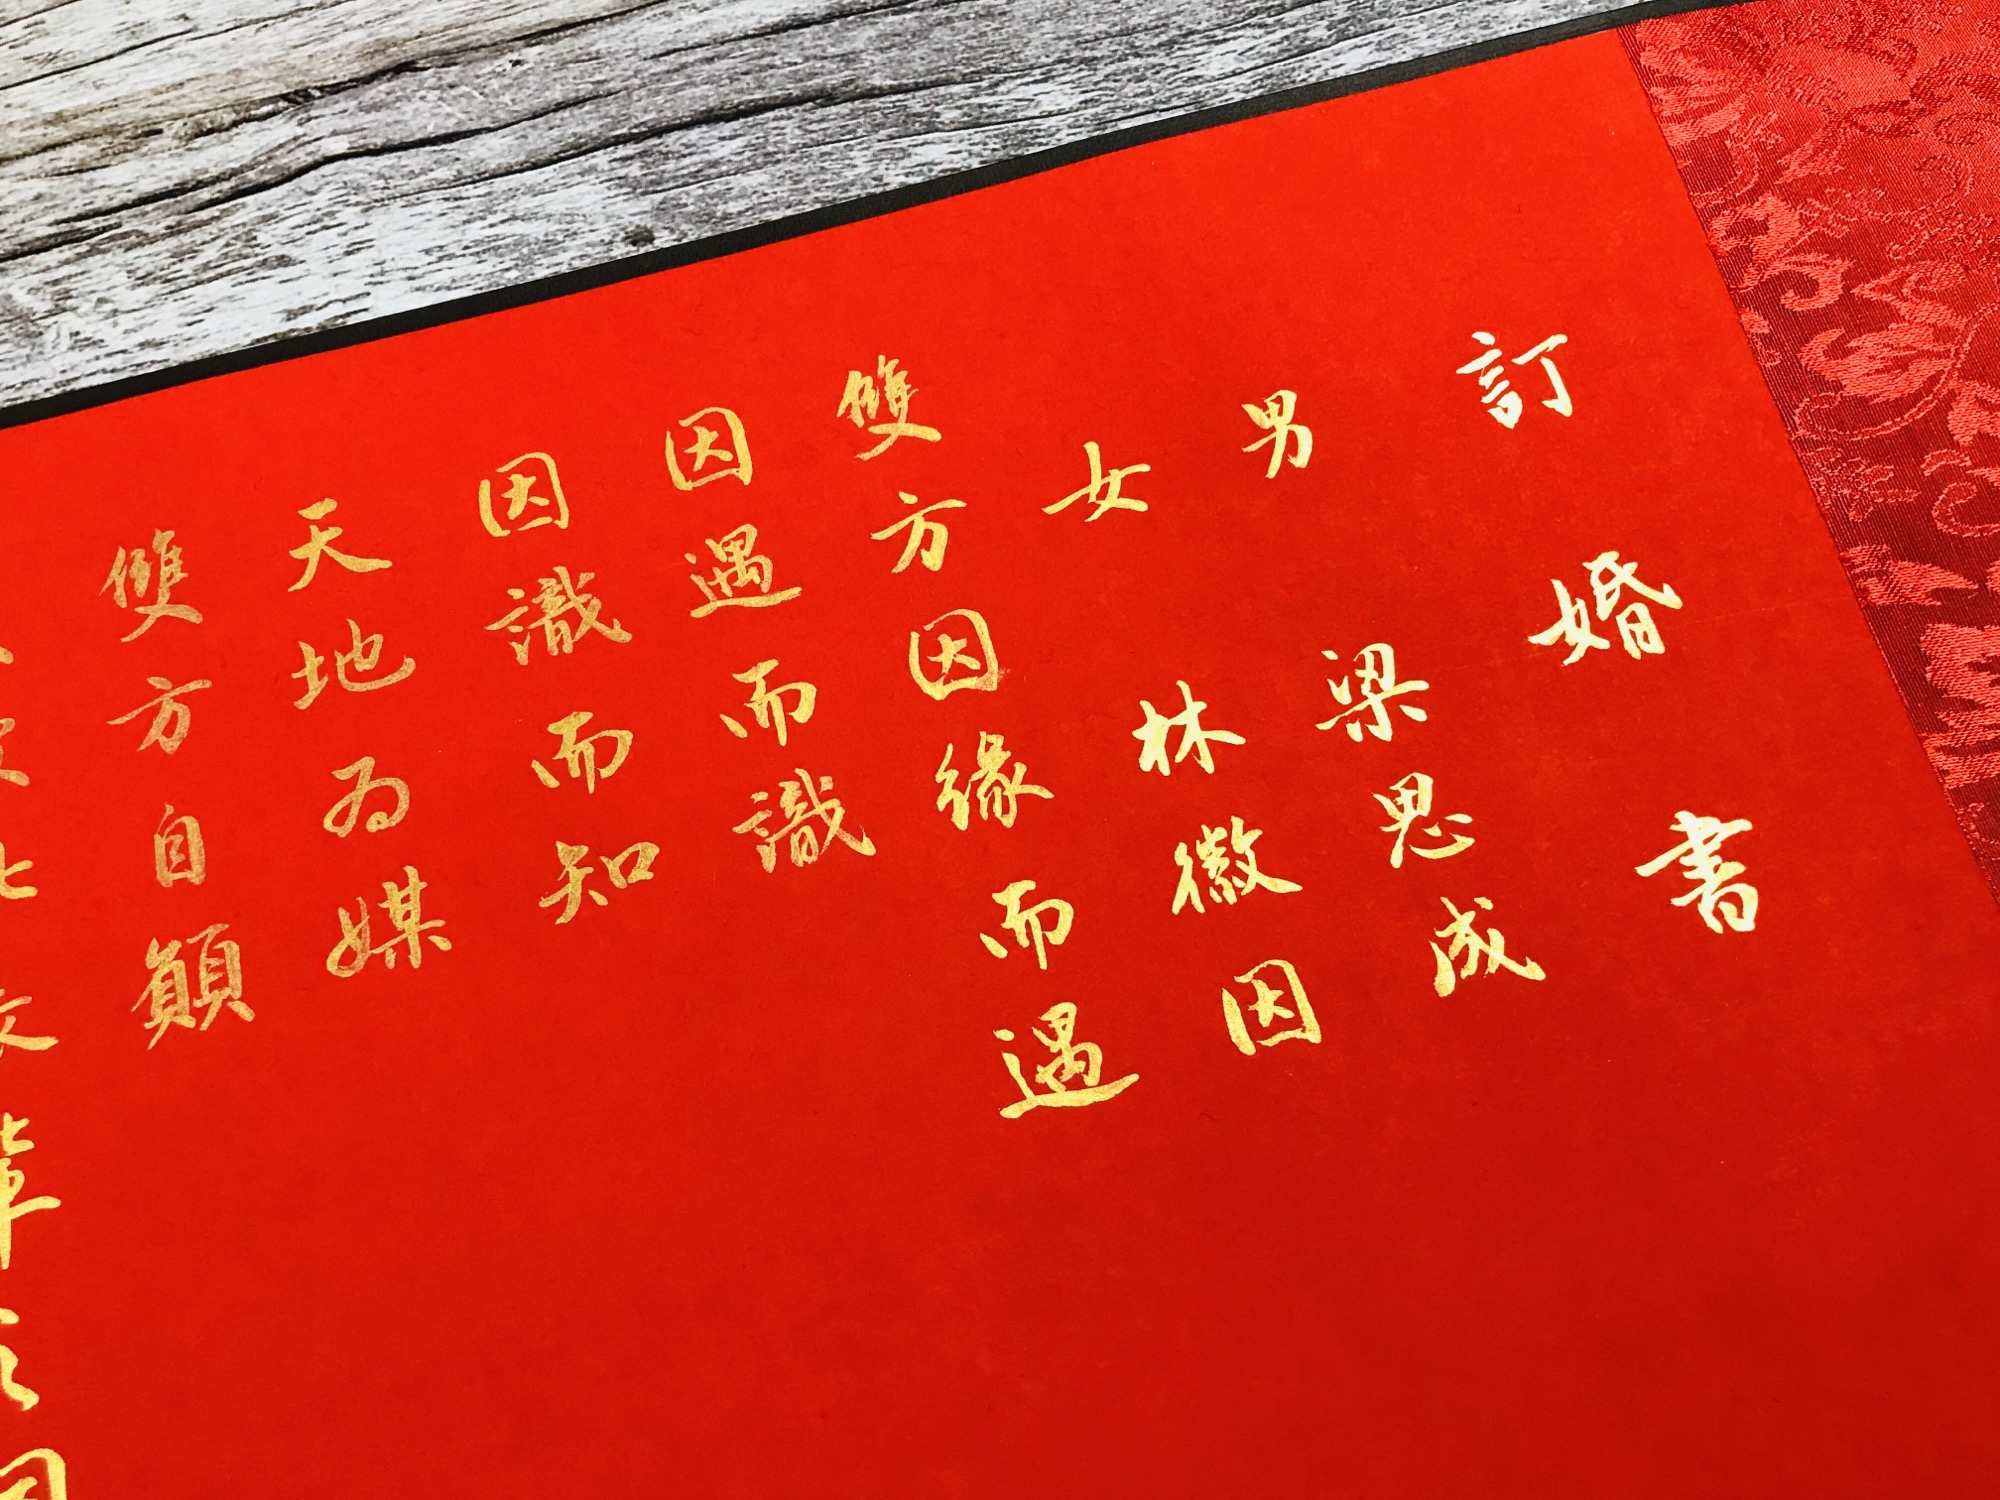 訂婚書
男 梁思成
女 林徽因
雙方因緣而遇
因遇而識
因識而知
天地為媒
雙方自願